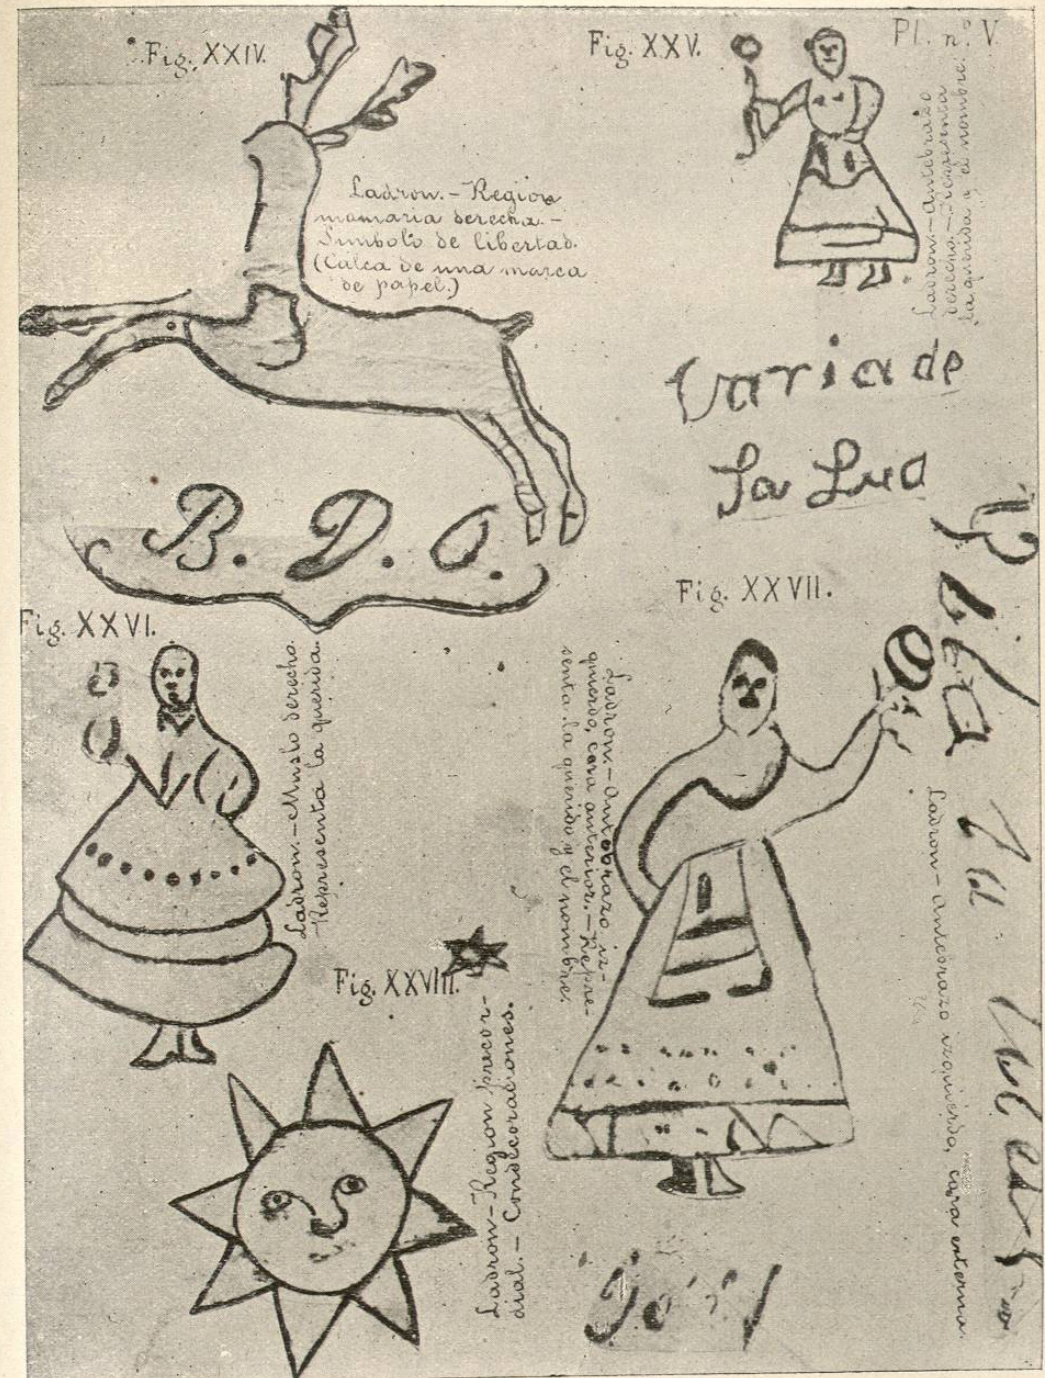 Fig. XXIV.
Ladron.-Region
mamaria derecha.-
Simbolo de libertad.
(Calca de una marca
de papel.)
B. D. O.
Fig. XXV.
Pl. nº. V.
Ladron.-Antebrazo
derecho.-Representa
la querida y el nombre.
Varia de
la Luc
Fig. XXVI.
Ladron.-Muslo derecho.
-Representa la querida.
Fig. XXVII.
Ladron.-Antebrazo iz-
quierdo, cara anterior.-Repre-
senta la querida y el nombre.
Ladron-antebrazo izquierdo, cara externa.
Fig. XXVIII.
Ladron-Region precor-
dial.-Condecoraciones.